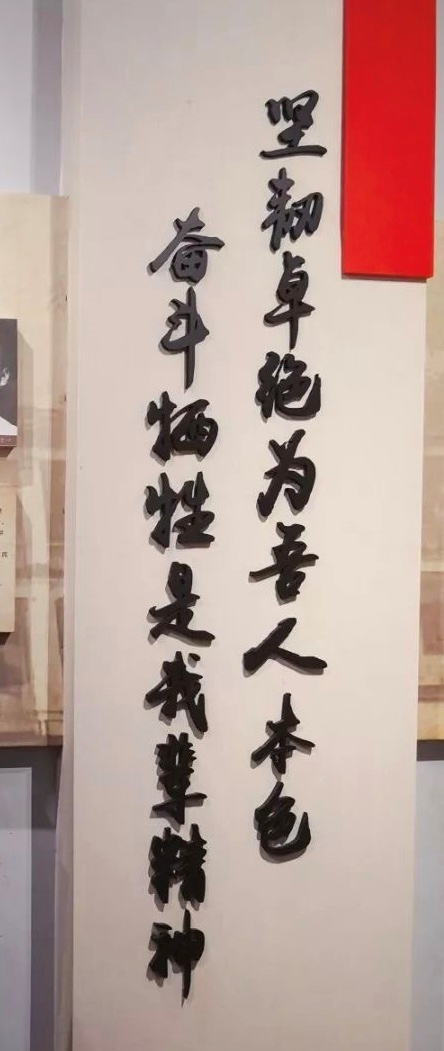 坚韧卓绝为吾人本色
奋斗牺牲是我辈精神